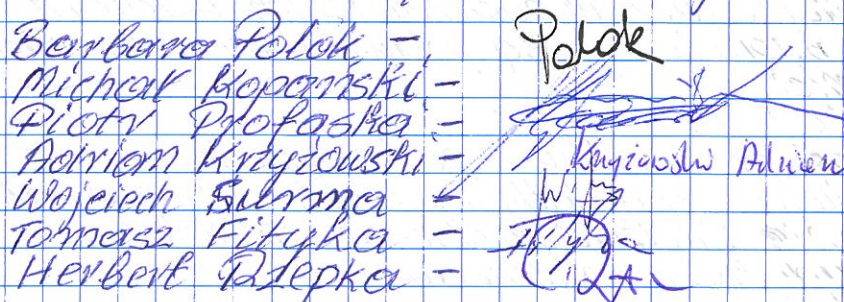 Barbara Polok - Polok
Michał Kopański -
Piotr Profaska -
Adrian Krzyżowski - Krzyżowski Adrian
Wojciech Surma -
Tomasz Fityka - Fityka
Herbert Rzepka -